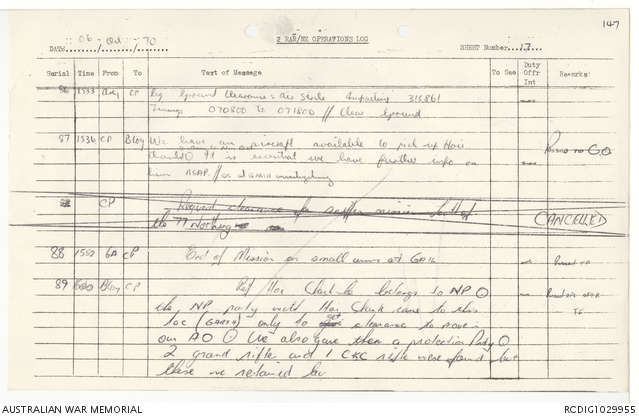 147
2 RAR/NZ OPERATIONS LOG
DATE 06 / Oct / 70
SHEET Number 17
Serial Time From To Text of Message To See Duty Offr Int Remarks
86 1533 CP Ground Clearance
Timings 070800 To 071800 // Clear Ground
87 1536 CP Bloy We have an aircraft available to pick up Hoi
Chanh It is essential we have further info on
him ASAP //
CP Request clearance for mission
the 77 Northing CANCELLED
88 1552 GA CP End of Mission on small arms at
89 Bloy CP Ref Hoi Chanh he belongs to NP
the NP party with Hoi Chanh came to this
loc only to get clearance to move in
our AO We also gave them a protection Party
2 grand rifles and 1 CKC rifle were found but
these we retained by
AUSTRALIAN WAR MEMORIAL
RCDIG1029955